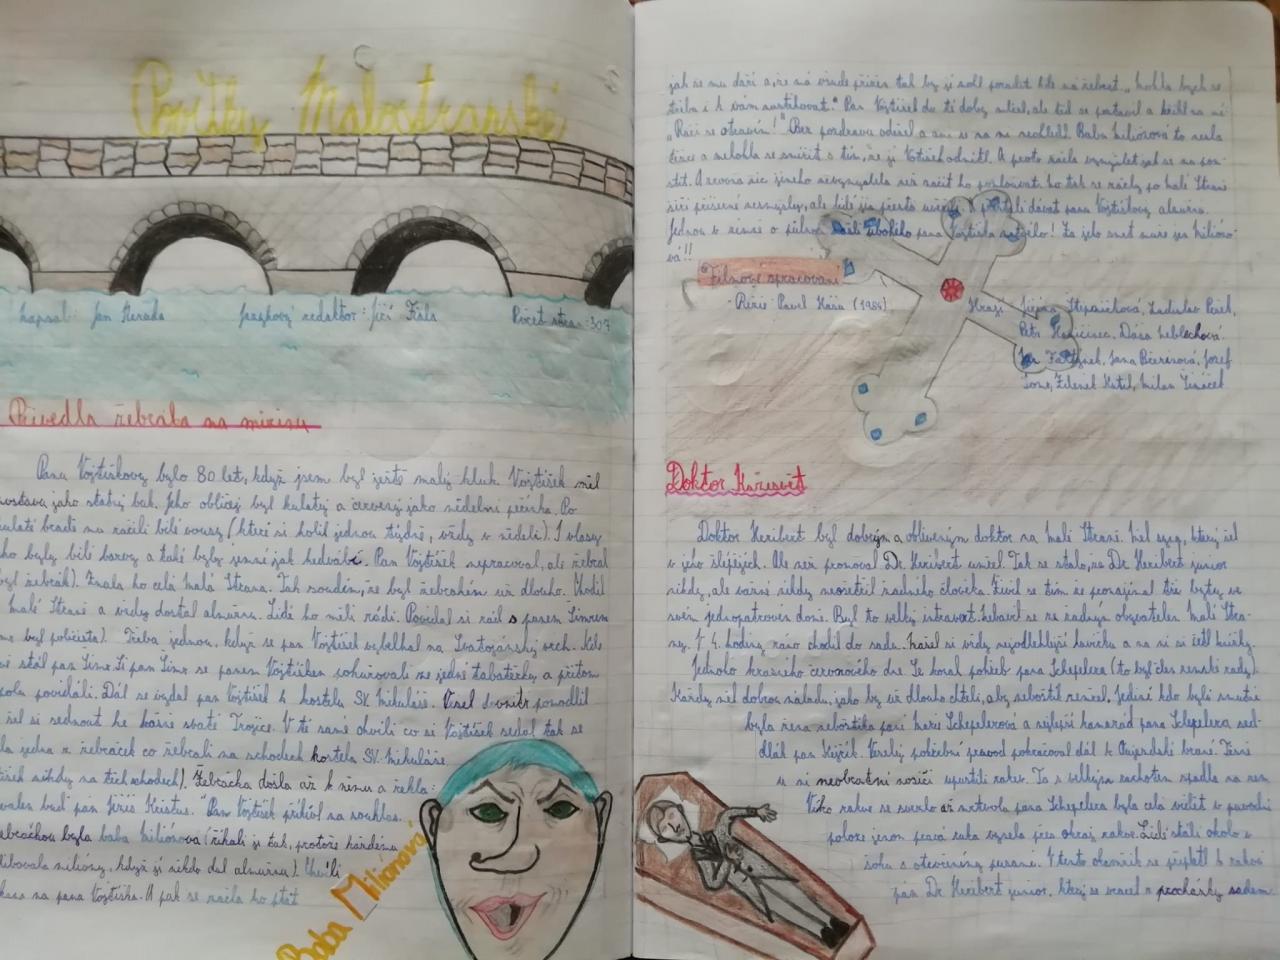 Povídky Malostranské
napsal: Jan Neruda jazykový redaktor: Jiří Fiala Počet stran: 307
Přivedla žebráka na mizinu
Panu Vojtíškovy bylo 80 let, když jsem byl ještě malý kluk. Vojtíšek měl
postava jako statný buk. Jeho obličej byl kulatej a červenej jako nedělní pečínka. Po
kulaté bradě mu rašili bílé vousy (které si holil jednou týdně, vždy v neděli). I vlasy
byly bílí barvy a také byly jemné jak hedvábí. Pan Vojtíšek nepracoval, ale žebral
byl žebrák). Znala ho celá Malá Strana. Tak soudím, že byl žebrákem už dlouho. Chodil
malé Straně a vždy dostal almužnu. Lidé ho měli rádi. Povídal si rád s panem Šimrem
byl policista). Třeba jednou, když se pan Vojtíšek vybelhal na Svatojánský vrch. Kde
stál pan Šimr. Ti pan Šimr se panem Vojtíškem počastovali ze jedné tabatěrky a přitom
spolu povídali. Dál se vydal pan Vojtíšek k kostelu Sv. Mikuláše. Vešel dovnitř pomodlil
šel si sednout ke kašně svaté Trojice. V té samé chvíli co si Vojtíšek sedal tak se
jedna z žebraček co žebrali na schodech kostela Sv. Mikuláše.
nikdy na těch schodech). Žebračka došla až k němu a řekla:
buď pán Ježíš Kristus." Pan Vojtíšek přikývl na souhlas.
žebračkou byla baba Miliónová (říkali jí tak, protože každému
slibovala milióny, když jí někdo dal almužnu). Chvíli
na pana Vojtíška. A pak se začala ho ptát
Baba Miliónová
jak se mu daří a, že má všude přízeň tak by jí mohl poradit kde má žebrat. „Mohla bych se
třeba i k vám nastěhovat." Pan Vojtíšek do té doby mlčel, ale teď se postavil a křikl na ní
„Ráči se otravím!" Bez pozdravu odešel a ani se na ni neohlédl. Baba Miliónová to nesla
těžce a nemohla se smířit s tím, že jí Vojtíšek odmítl. A proto začla vymýšlet jak se mu pom-
stít. A zrovna nic jiného nevymyslela než začít ho pomlouvat. No tak se začaly po Malé Straně
šířit příšerné nesmysly, ale lidé jim přesto věřili. A přestali dávat panu Vojtíškovy almužnu.
Jednou v zimě o půlnoci našli ubohého pana Vojtíška mrtvého! Za jeho smrt může jen Milióno-
vá!!
Filmové zpracování
- Režie Pavel Háša (1984) Hrají: Jiřina Štěpničková, Ladislav Pešek,
Petr Haničinec, Dáša Neblechová
Jan Faltýnek, Jana Březinová, Josef
Somr, Zdeněk Kutil, Milan Jiráček
Doktor Kazisvět
Doktor Heribert byl dobrým a oblíbeným doktor na Malé Straně. Měl syna, který šel
v jeho šlépějích. Ale než promoval Dr. Heribert umřel. Tak se stalo, že Dr. Heribert junior
nikdy, ale vážně nikdy neošetřil žádného člověka. Živil se tím že pronajímal tři byty ve
svém jednopatrovém domě. Byl to velký introvert. Nebavil se se žádným obyvatelem Malé Stra-
ny. V 4. hodiny ráno chodil do sadu. Našel si vždy nejodlehlejší lavičku a na ní si četl knížky.
Jednoho krásného červnového dne. Se konal pohřeb pana Schepelera (to byl člen zemské rady).
Každý měl dobrou náladu, jako by už dlouho chtěli, aby nebožtík zemřel. Jediní kdo byli smutní
byla žena nebožtíka paní Marie Schepelerová a nejlepší kamarád pana Schepelera sed-
dlář pan Kejřík. Veselý pohřební průvod pokračoval dál k Oujezdské bráně. Těsně
u ní neobratní nosiči upustili rakev. Ta s velkým rachotem spadla na zem.
Víko rakve se svezlo až mrtvola pana Schepelera byla celá vidět v původní
poloze jenom pravá ruka visela přes okraj rakve. Lidé stáli okolo v
šoku s otevřenými pusami. V tento okamžik se připletl k rakvi
pán Dr. Heribert junior, který se vracel z procházky sadem.